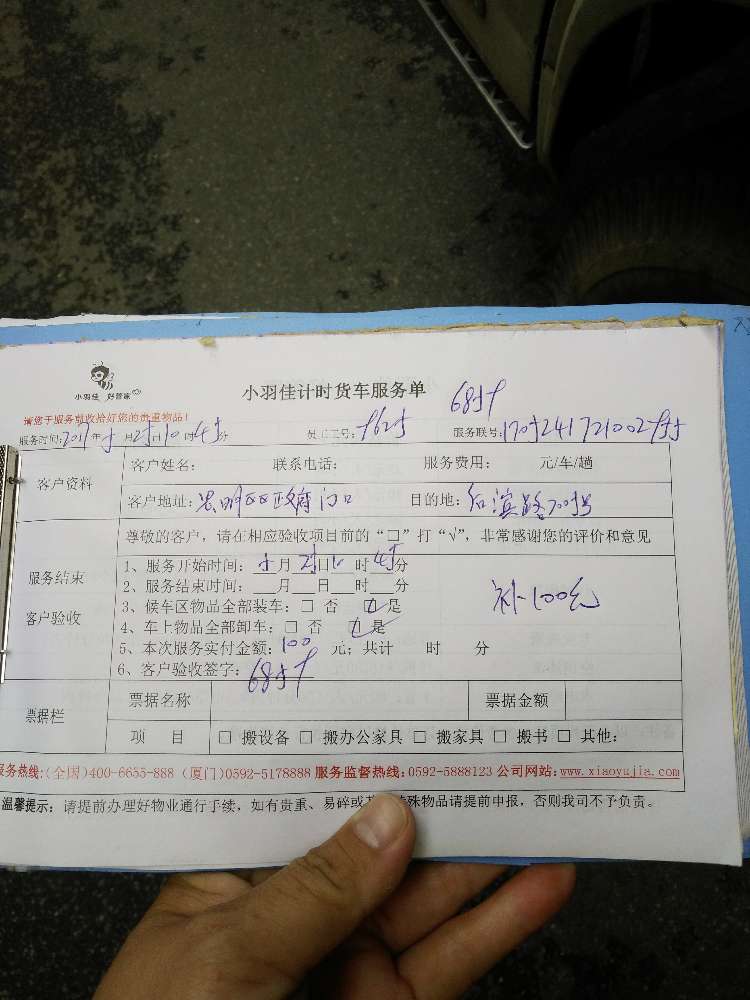 小羽佳 好管家
小羽佳计时货车服务单
请您于服务前收拾好您的贵重物品!
服务时间:2017年5月25日10时45分 员工工号: 服务联号:
客户资料
客户姓名: 联系电话: 服务费用: 元/车/趟
客户地址:思明区区政府门口 目的地:后滨路
尊敬的客户,请在相应验收项目前的“□”打“√”,非常感谢您的评价和意见
服务结束
客户验收
1、服务开始时间:5月25日10时45分
2、服务结束时间:___月___日___时___分
3、候车区物品全部装车:□ 否 □ 是
4、车上物品全部卸车:□ 否 □ 是
补100元
5、本次服务实付金额:100 元;共计 时 分
6、客户验收签字:
票据栏
票据名称 票据金额
项 目 □ 搬设备 □ 搬办公家具 □ 搬家具 □ 搬书 □ 其他:
服务热线:(全国)400-6655-888 (厦门)0592-5178888 服务监督热线:0592-5888123 公司网站:www.xiaoyujia.com
温馨提示:请提前办理好物业通行手续,如有贵重、易碎或 殊物品请提前申报,否则我司不予负责。